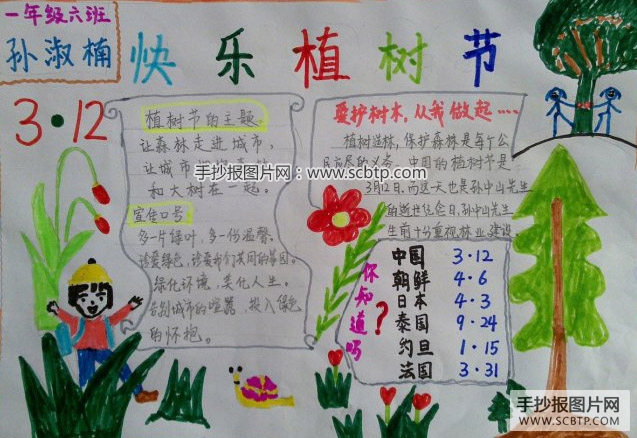 一年级六班
孙淑楠
快乐植树节
3·12
植树节的主题
让森林走进城市,
让城市
和大树在一起。
宣传口号
多一片绿叶,多一份温馨。
珍爱绿色,珍爱我们共同的家园。
绿化环境,美化人生。
告别城市的喧嚣,投入绿色
的怀抱。
爱护树木,从我做起····
植树造林,保护森林是每个公
民应尽的义务。中国的植树节是
3月12日,而这天也是孙中山先生
的逝世纪念日,孙中山先生
生前十分重视林业建设
你知道吗?
中国 3·12
朝鲜 4·6
日本 4·3
泰国 9·24
约旦 1·15
法国 3·31
手抄报图片网:www.scbtp.com
手抄报图片网
SCBTP.COM